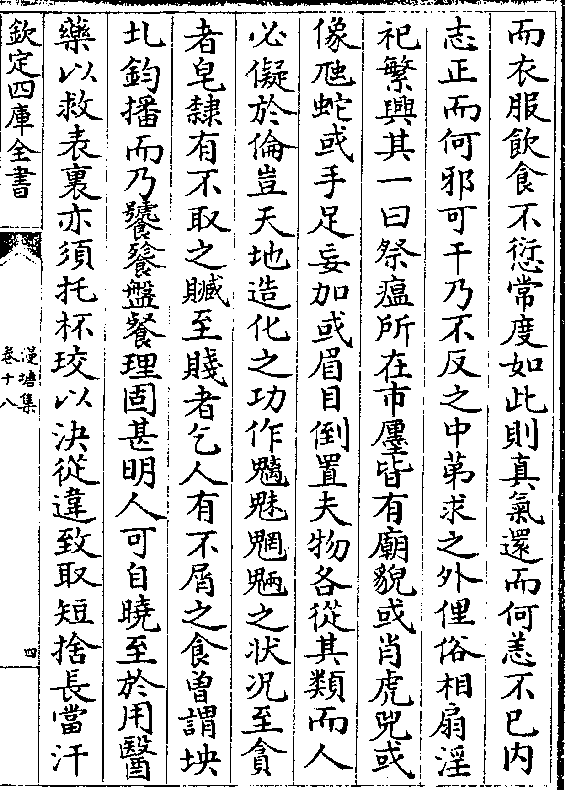 而衣服飲食不愆常度如此則真氣還而何恙不已内
志正而何邪可干乃不反之中苐求之外俚俗相扇淫
祀繁興其一曰祭瘟所在市廛皆有廟貌或肖虎兕或
像虺蛇或手足妄加或眉目倒置夫物各從其類而人
必儗於倫豈天地造化之功作魑魅魍魎之状况至貪
者皂隸有不取之贜至賤者乞人有不屑之食曽謂坱
圠鈞播而乃饕餮盤餐理固甚明人可自曉至於用醫
藥以救表裏亦須托杯珓以決從違致取短捨長當汗
欽定四庫全書
漫塘集
卷十八
四